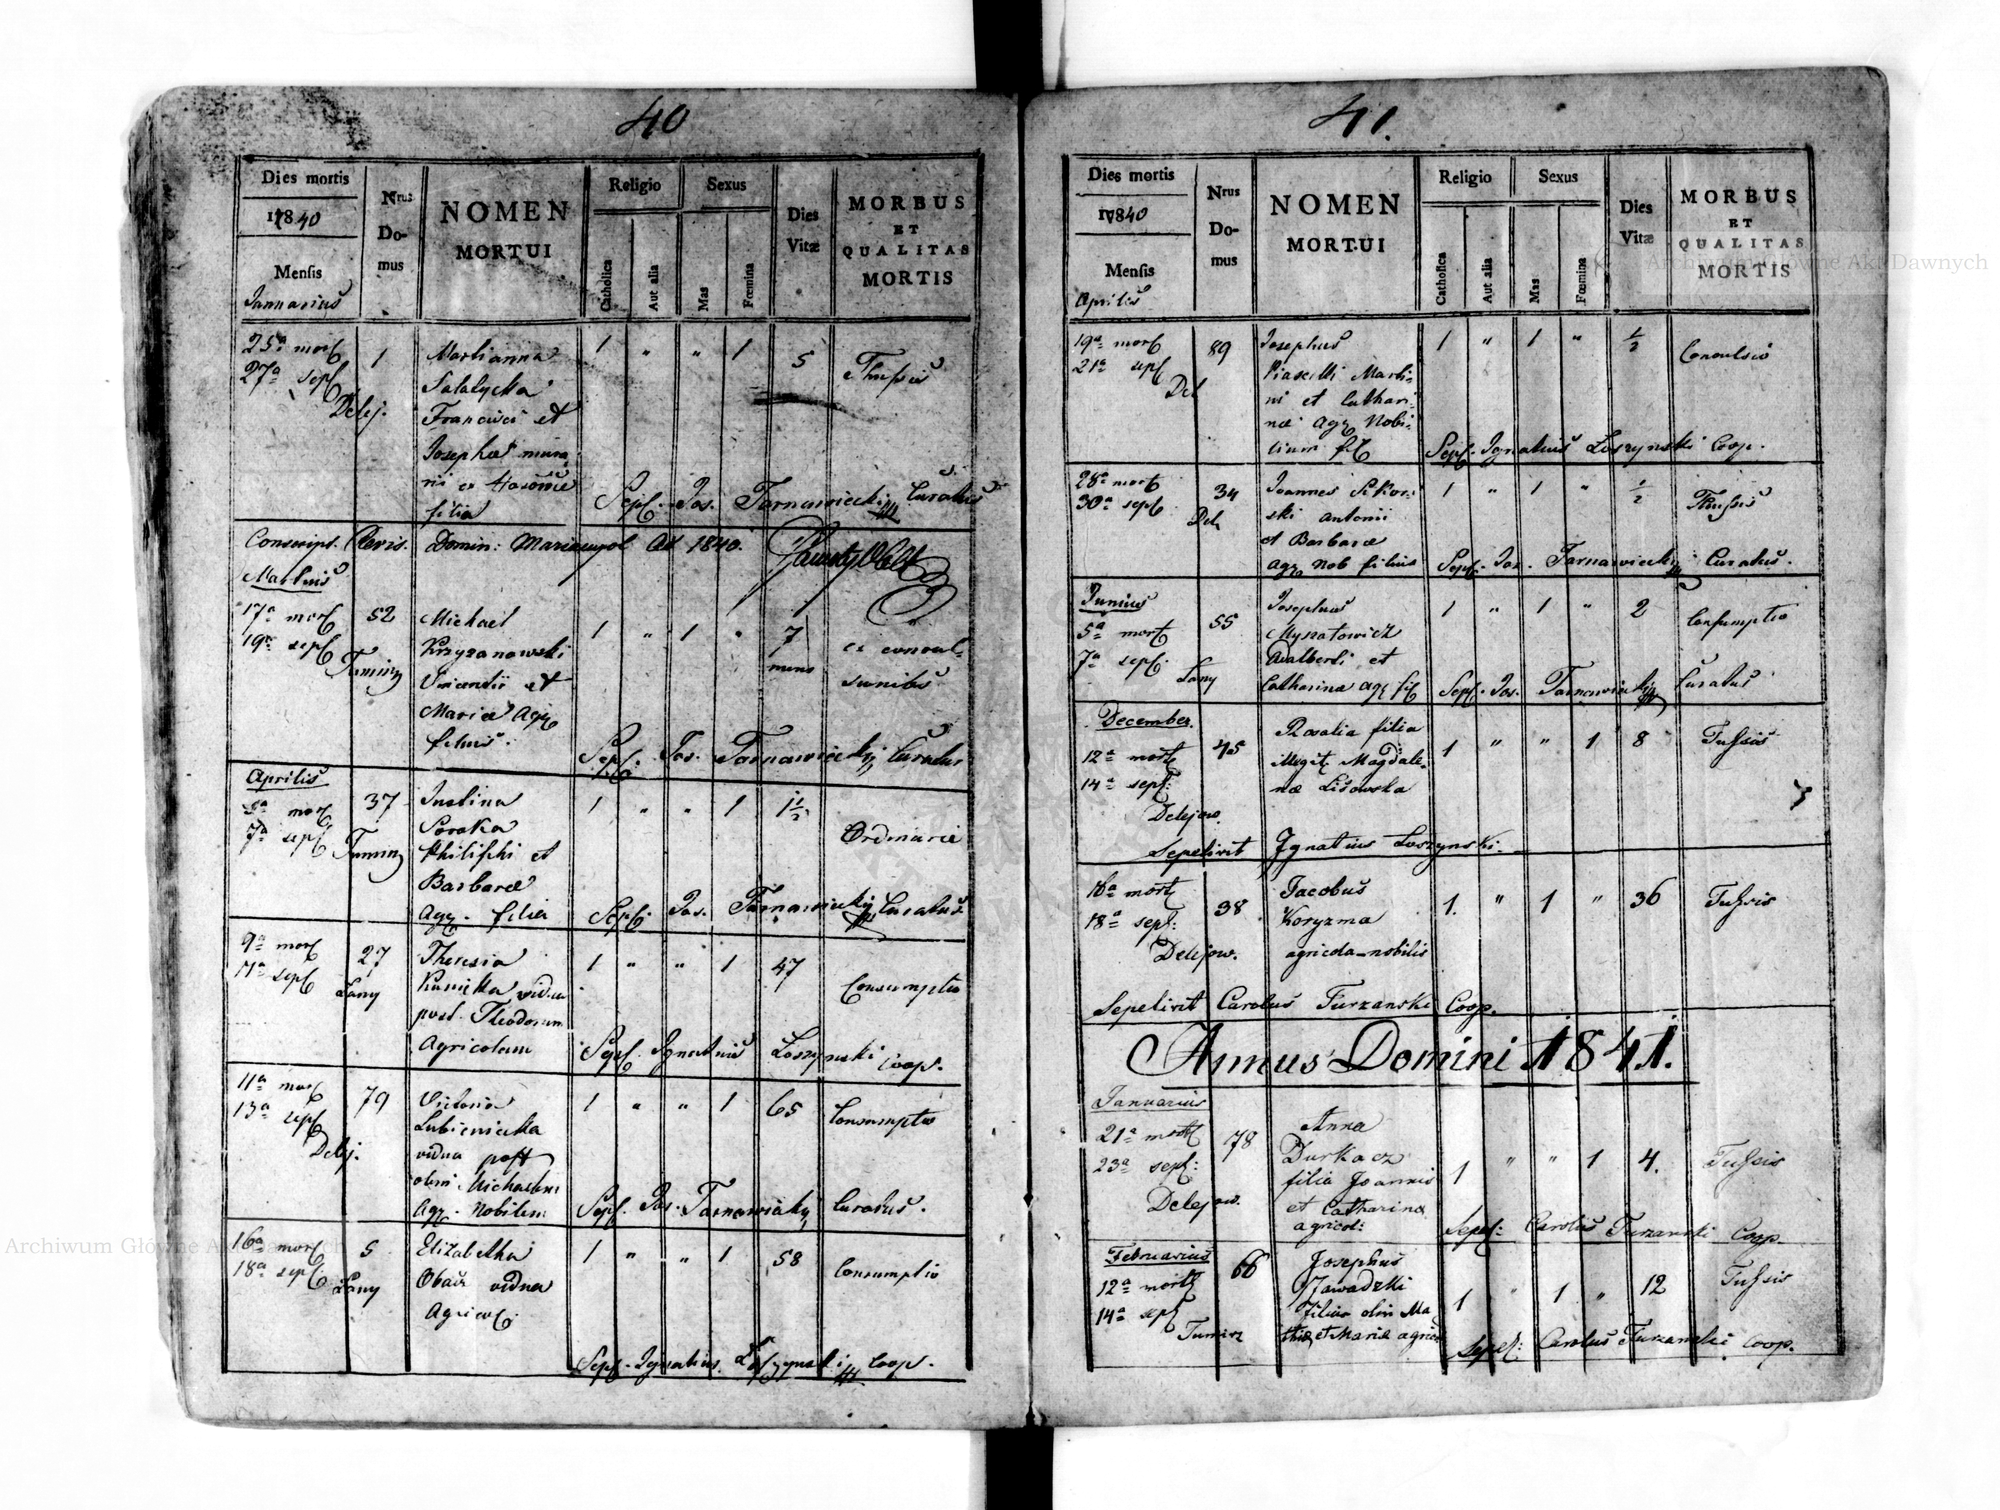 40
Dies mortis
1840
Mensis
Januarius
Nrus
Do-
mus
NOMEN
MORTUI
Religio
Catholica
Aut alia
Sexus
Mas
Fœmina
Dies
Vitæ
MORBUS
ET
QUALITAS
MORTIS
25a mort
27a sepl
Delej.
1
Marianna
Francisci et
Josephæ
filia
1 " " 1
5
Thussis
Sepl. Jos. Tarnawiecki Curatus
Conscript. Clevis. Domin: Mariampol Ad 1840.
Martius
17a mort
19a sepl
Tumirz
52
Michael
Krzyzanowski
Vincentii et
Mariæ Agr
filius.
1 " 1 "
7
ex convul-
sionibus
Sepl. Jos. Tarnawiecki Curatus
Aprilis
5a mort
7a sepl
Tumirz
37
Justina
Soroka
Philippi et
Barbaræ
Agr. filia
1 " " 1
1 1/2
Ordinaria
Sepl. Jos. Tarnawiecki Curatus
9a mort
11a sepl
Lany
27
Theresia
Kunicka vidua
post Theodorum
Agricolam
1 " " 1
47
Consumptio
Sepl. Ignatius Loszynski Coop.
11a mort
13a sepl
Delej.
79
Victoria
Lubieniecka
vidua post
olim Michaelem
Agr. Nobilem
1 " " 1
65
Consumptio
Sepl. Jos. Tarnawiecki Curatus.
16a mort
18a sepl
Lany
5
Elizabetha
vidua
Agricol.
1 " " 1
58
Consumptio
Sepl. Ignatius Loszynski Coop.
41.
Dies mortis
1840
Mensis
Aprilis
Nrus
Do-
mus
NOMEN
MORTUI
Religio
Catholica
Aut alia
Sexus
Mas
Fœmina
Dies
Vitæ
MORBUS
ET
QUALITAS
MORTIS
19a mort
21a sepl
Del
89
Josephus
Piasecki Marti-
ni et Cathari-
næ Agr Nobi-
lium fil
1 " 1 "
1/2
Convulsio
Sepl. Ignatius Loszynski Coop.
28a mort
30a sepl
Del
34
Joannes Sikor-
ski Antonii
et Barbaræ
Agr Nob filius
1 " 1 "
1/2
Thussis
Sepl. Jos. Tarnawiecki Curatus.
Junius
5a mort
7a sepl.
Lany
55
Josephus
Adalberti et
Catharinæ Agr fil
1 " 1 "
2
Consumptio
Sepl. Jos. Tarnawiecki Curatus
December.
12a mort
14a sepl:
Delejow.
45
Rosalia filia
illegit Magdale-
næ Lisowska
1 " " 1
8
Tussis
Sepelivit Ignatius Loszynski.
16a mort
18a sepl:
Delejow.
38
Jacobus
Koryzma
agricola nobilis
1. " 1 "
36
Tussis
Sepelivit Carolus Turzanski Coop.
Annus Domini 1841.
Januarius
21a mort
23a sepl:
Delejow.
78
Anna
Durkacz
filia Joannis
et Catharina
agricol:
1 " " 1
4.
Tussis
Sepel: Carolus Turzanski Coop.
Februarius
12a mort
14a sepl
Tumirz
66
Josephus
Zawadzki
filius olim Ma
thiæ et Mariæ agricol
1 " 1 "
12
Tussis
Sepel: Carolus Turzanski Coop.
Archiwum Główne Akt Dawnych
Archiwum Główne Akt Dawnych